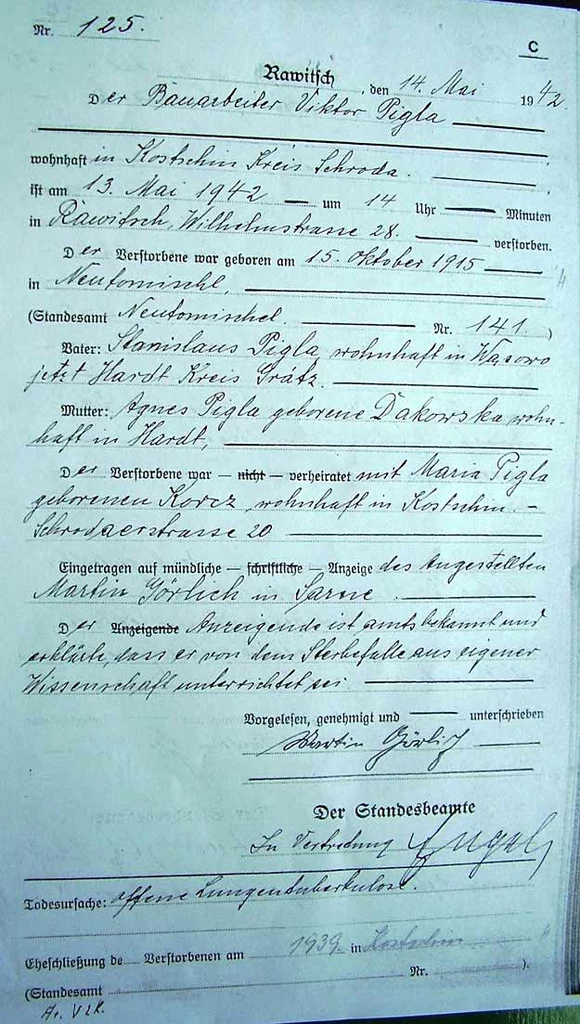 Nr. 125.
C
Rawitsch, den 14. Mai 1942.
Der Bauarbeiter Viktor Pigla
wohnhaft in Kostschin Kreis Schroda.
ist am 13. Mai 1942 um 14 Uhr Minuten
in Rawitsch, Wilhelmstrasse 28 verstorben.
Der Verstorbene war geboren am 15. Oktober 1915
in Neutomischl,
(Standesamt Neutomischel. Nr. 141)
Vater: Stanislaus Pigla, wohnhaft in Wąsowo
jetzt Hardt Kreis Grätz.
Mutter: Agnes Pigla geborene Dakowska wohn-
haft in Hardt,
Der Verstorbene war — nicht — verheiratet mit Maria Pigla
geborenen Korcz, wohnhaft in Kostschin. -
Schrodaerstrasse 20
Eingetragen auf mündliche — schriftliche — Anzeige des Angestellten
Martin Görlich in Sarne.
Der Anzeigende Anzeigende ist amtsbekannt und
erklärte, dass er von dem Sterbefalle aus eigener
Wissenschaft unterrichtet sei
Vorgelesen, genehmigt und unterschrieben
Martin Görlich
Der Standesbeamte
In Vertretung
Todesursache: offene Lungentuberkulose.
Eheschließung de Verstorbenen am 1939. in Kostschin
(Standesamt Nr. ).